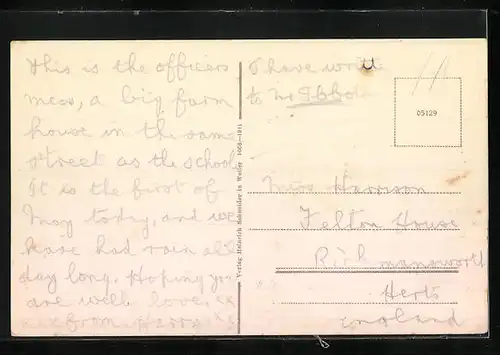 This is the officers
mess, a big farm
house in the same
street as the school
It is the first of
May today, and we
have had rain all
day long. Hoping you
are well love. xx
from Harry xx
Verlag Heinrich Schneider in Weiler
I have written
to Mr
05129
Miss Harrison
Felton House
Rickmansworth
Herts
England